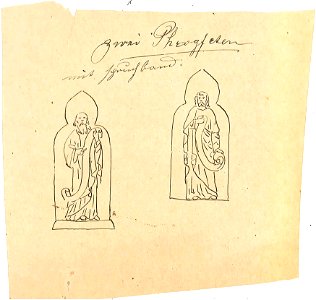 zwei Propheten
mit spruchband.